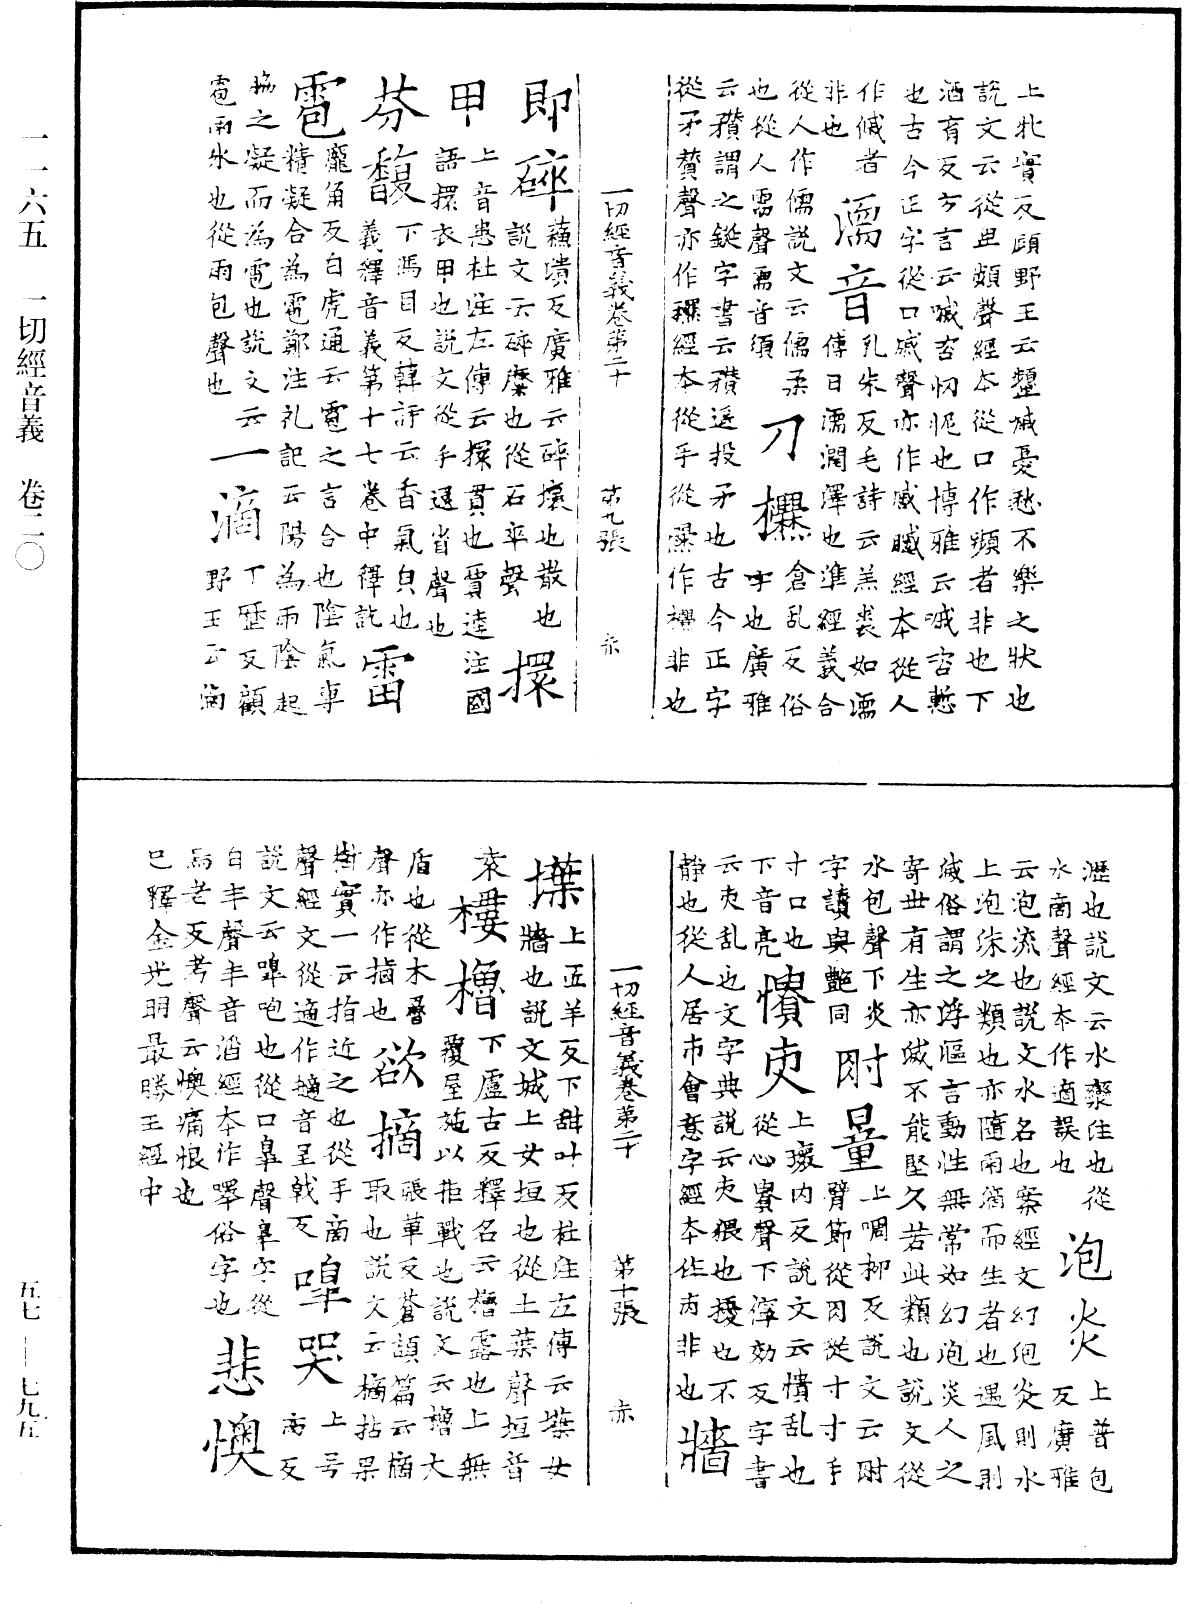 上牝實反顧野王云顰慽憂愁不樂之狀也
說文云從卑頻聲經本從口作嚬者非也下
酒育反方言云嘁咨忸怩也博雅云嘁咨慙
也古今正字從口戚聲亦作慼䁷經本從人
作傶者
非也
濡音
乳朱反毛詩云羔裘如濡
傳曰濡潤澤也準經義合
從人作儒說文云儒柔
也從人需聲需音須
刀穳
倉亂反俗
字也廣雅
云穳謂之鋋字書云穳遥投矛也古今正字
從矛贊聲亦作䂎經本從手從爨作攥非也
一切經音義卷第二十 第九張 赤
即碎
蘇潰反廣雅云碎壞也散也
說文云碎䃺也從石卒聲
擐甲
上音患杜注左傳云擐貫也賈逵注國
語擐衣甲也說文從手還省聲也
芬馥
下馮目反韓詩云香氣皃也
義釋音義第十七卷中釋訖
雷雹
龐角反白虎通云雹之言合也陰氣專
精凝合為雹鄭注礼記云陽為雨陰起
脅之凝而為雹也說文云
雹雨冰也從雨包聲也
一滴
丁歷反顧
野王云滴
瀝也說文云水欒注也從
水啇聲經本作適誤也
泡炎
上普包
反廣雅
云泡流也說文水名也案經文幻泡炎則水
上泡沫之類也亦隨雨滴而生者也遇風則
滅俗謂之浮漚言動性無常如幻泡炎人之
寄世有生亦滅不能堅久若此類也說文從
水包聲下炎
字讀與艷同
肘量
上啁柳反說文云肘
臂節從肉從寸寸手
寸口也
下音亮
憒吏
上瓌內反說文云憒乱也
從心貴聲下㝸効反字書
云吏乱也文字典說云吏猥也擾也不
静也從人居市會意字經本作丙非也
一切經音義卷第二十 第十張 赤
牆堞
上匠羊反下甜叶反杜注左傳云堞女
牆也說文城上女垣也從土葉聲垣音
袁
樓櫓
下盧古反釋名云櫓露也上無
覆屋施以拒戰也說文云櫓大
盾也從木魯
聲亦作㯭也
欲摘
張革反蒼頡篇云摘
取也說文云摘拈果
樹實一云指近之也從手啇
聲經文從適作擿音呈戟反
嘷哭
上号
高反
說文云嘷咆也從口臯聲臯字從
白丰聲丰音滔經本作嗥俗字也
悲懊
烏老反考聲云懊痛恨也
已釋金光明最勝王經中
一一六五 一切經音義 卷二〇
五七—七九五